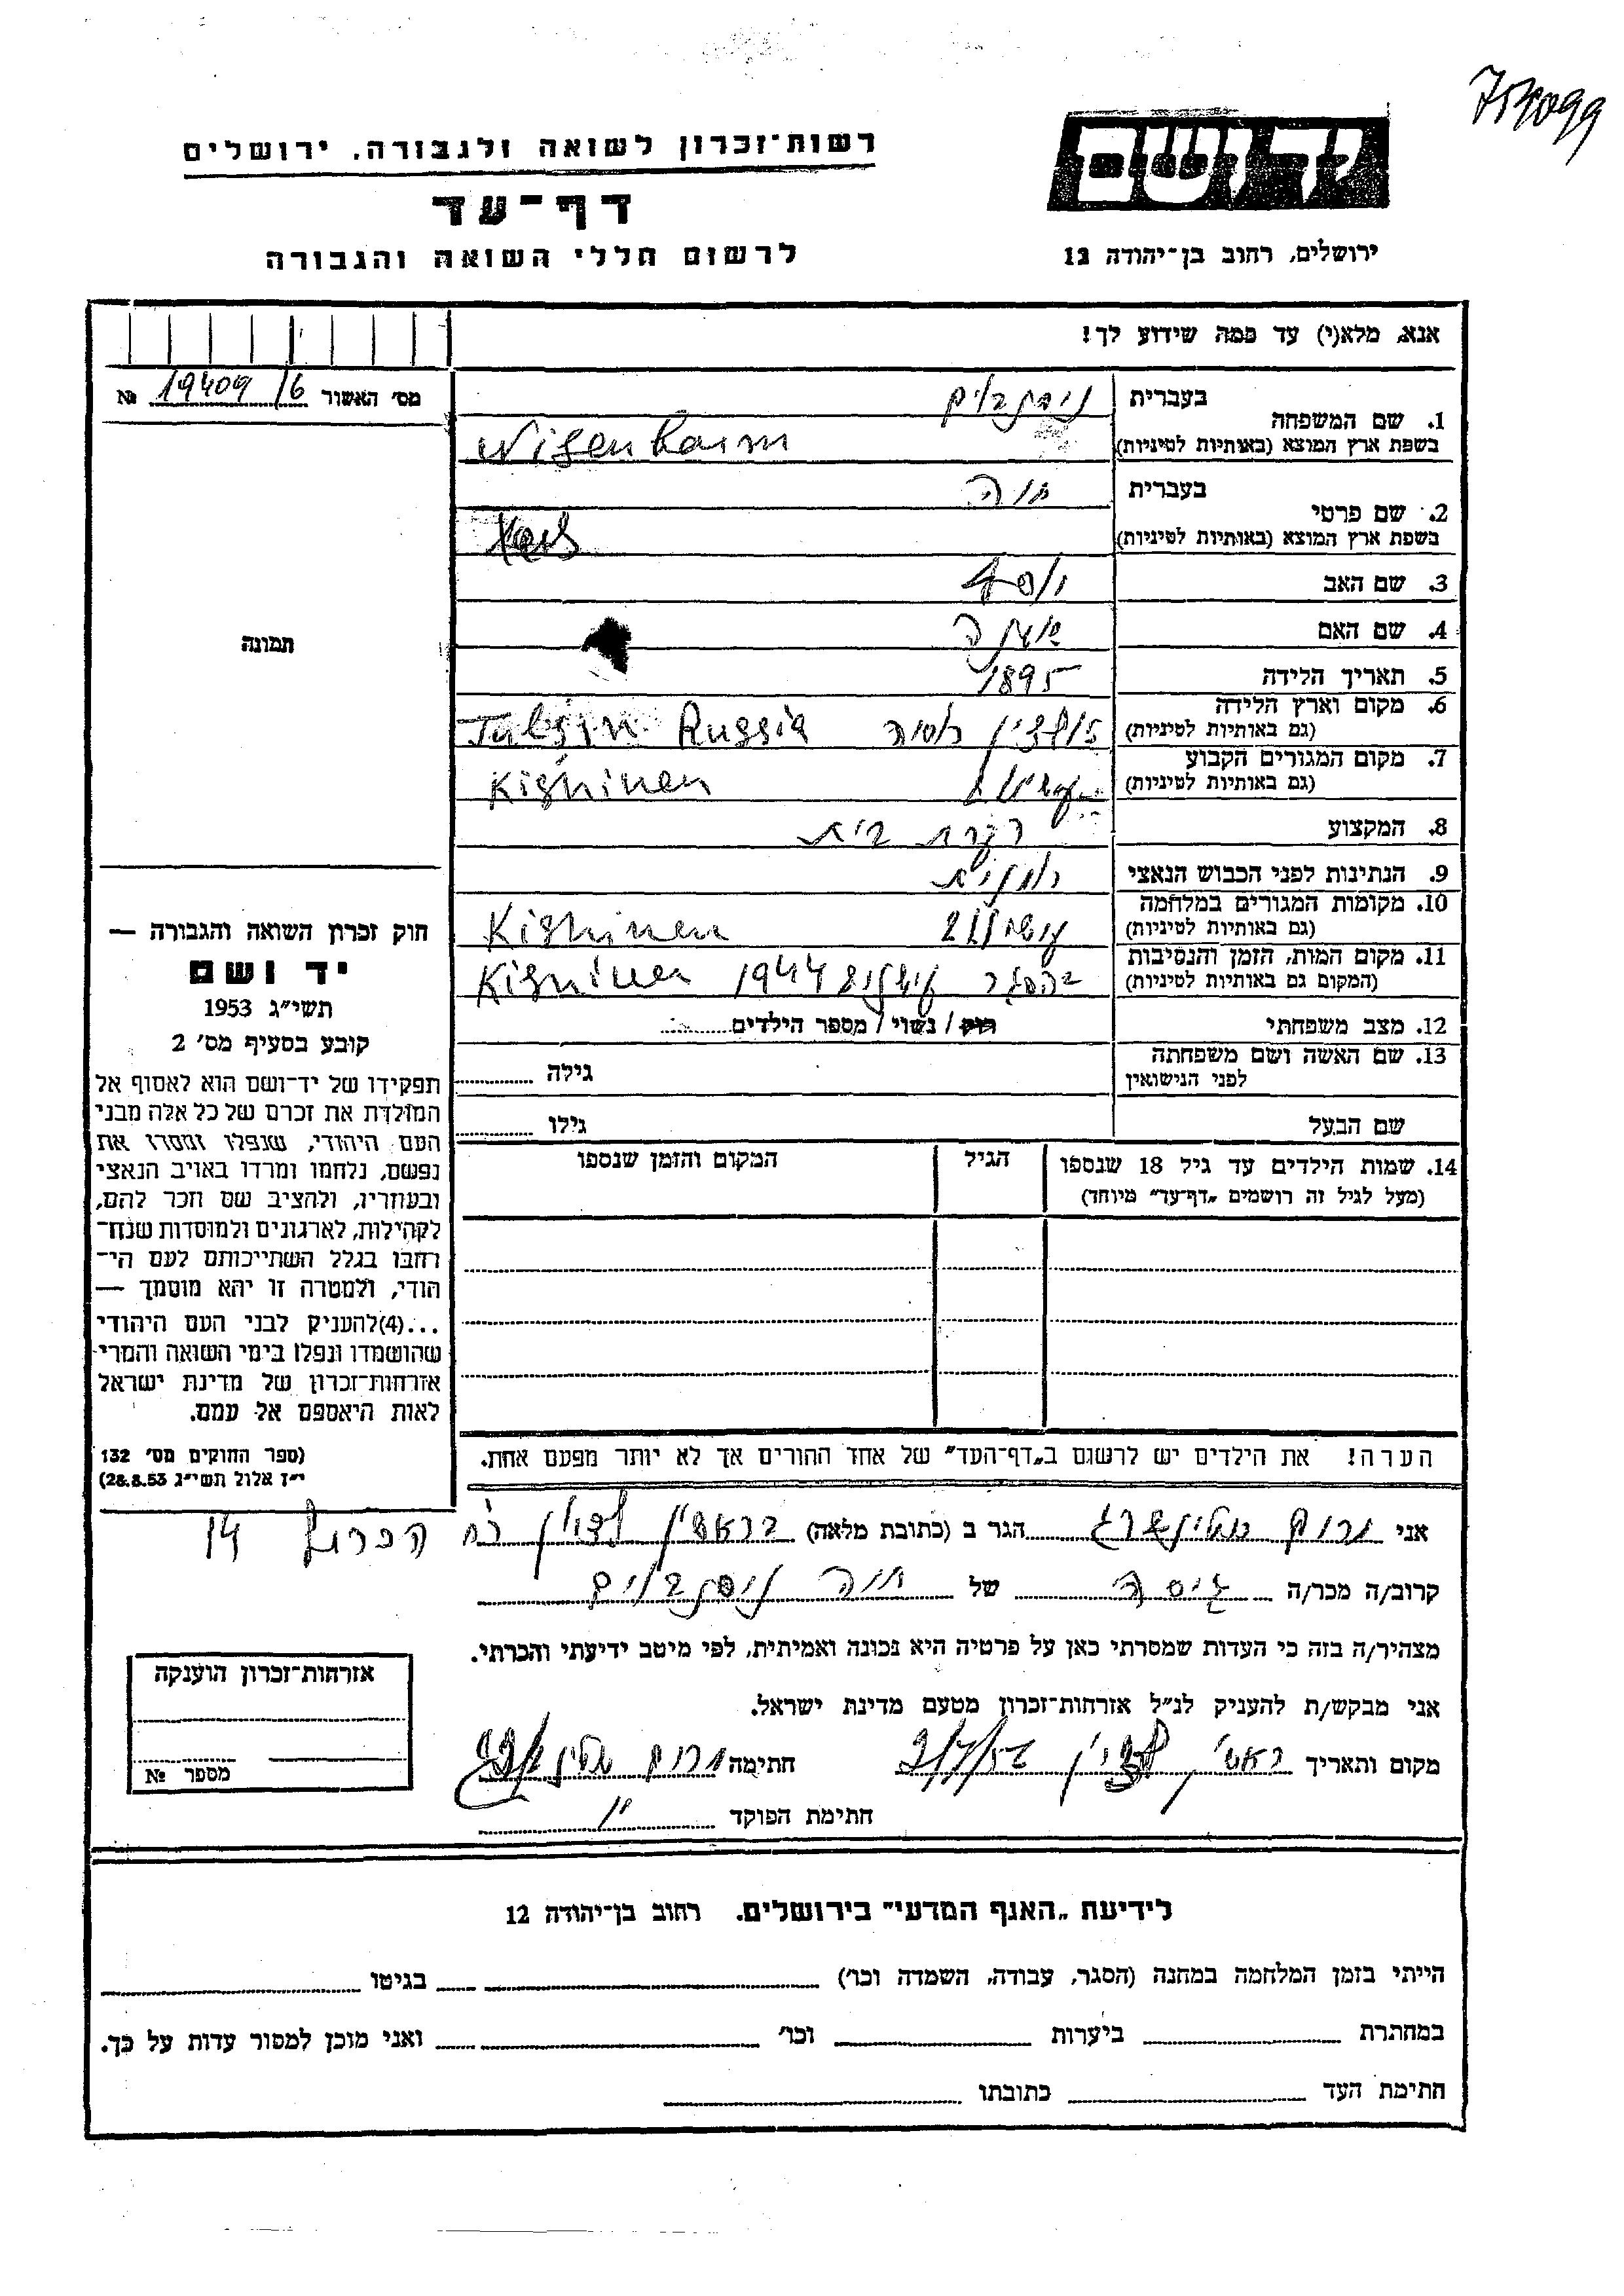 רשות־זכרון לשואה ולגבורה, ירושלים
דף־עד
לרשום חללי השואה והגבורה
ידושם
ירושלים, רחוב בן־יהודה 12
אנא, מלא(י) עד כמה שידוע לך!
מס' האשור 19409/6 №
1. שם המשפחה
בעברית ניסנבוים
בשפת ארץ המוצא (באותיות לטיניות) Nisenbaum
2. שם פרטי
בעברית חוה
בשפת ארץ המוצא (באותיות לטיניות)
3. שם האב יוסף
4. שם האם
5. תאריך הלידה 1895
6. מקום וארץ הלידה
(גם באותיות לטיניות) רוסיה Russia
7. מקום המגורים הקבוע
(גם באותיות לטיניות) Kishinev
8. המקצוע עקרת בית
9. הנתינות לפני הכבוש הנאצי רומנית
10. מקומות המגורים במלחמה
(גם באותיות לטיניות) Kishinev
11. מקום המות, הזמן והנסיבות
(המקום גם באותיות לטיניות) 1944 Kishinev
12. מצב משפחתי רוק / נשוי / מספר הילדים
13. שם האשה ושם משפחתה
לפני הנישואין גילה
שם הבעל גילו
14. שמות הילדים עד גיל 18 שנספו
(מעל לגיל זה רושמים „דף־עד" מיוחד)
הגיל
המקום והזמן שנספו
תמונה
חוק זכרון השואה והגבורה —
יד ושם
תשי״ג 1953
קובע בסעיף מס' 2
תפקידו של יד־ושם הוא לאסוף אל
המולדת את זכרם של כל אלה מבני
העם היהודי, שנפלו ומסרו את
נפשם, נלחמו ומרדו באויב הנאצי
ובעוזריו, ולהציב שם וזכר להם,
לקהילות, לארגונים ולמוסדות שנח־
רבו בגלל השתייכותם לעם הי־
הודי, ולמטרה זו יהא מוסמך —
...(4)להעניק לבני העם היהודי
שהושמדו ונפלו בימי השואה והמרי
אזרחות־זכרון של מדינת ישראל
לאות היאספם אל עמם.
(ספר החוקים מס' 132
י״ז אלול תשי״ג 28.8.53)
הערה! את הילדים יש לרשום ב„דף־העד" של אחד ההורים אך לא יותר מפעם אחת.
אני הגר ב (כתובת מלאה) בראשון לציון רח הכרמל 14
קרוב/ה מכר/ה גיסה של חוה ניסנבוים
מצהיר/ה בזה כי העדות שמסרתי כאן על פרטיה היא נכונה ואמיתית, לפי מיטב ידיעתי והכרתי.
אני מבקש/ת להעניק לנ״ל אזרחות־זכרון מטעם מדינת ישראל.
מקום ותאריך ראשון לציון חתימה
חתימת הפוקד
אזרחות־זכרון הוענקה
מספר №
לידיעת „האגף המדעי" בירושלים. רחוב בן־יהודה 12
הייתי בזמן המלחמה במחנה (הסגר, עבודה, השמדה וכו') בגיטו
במחתרת ביערות וכו' ואני מוכן למסור עדות על כך.
חתימת העד כתובתו